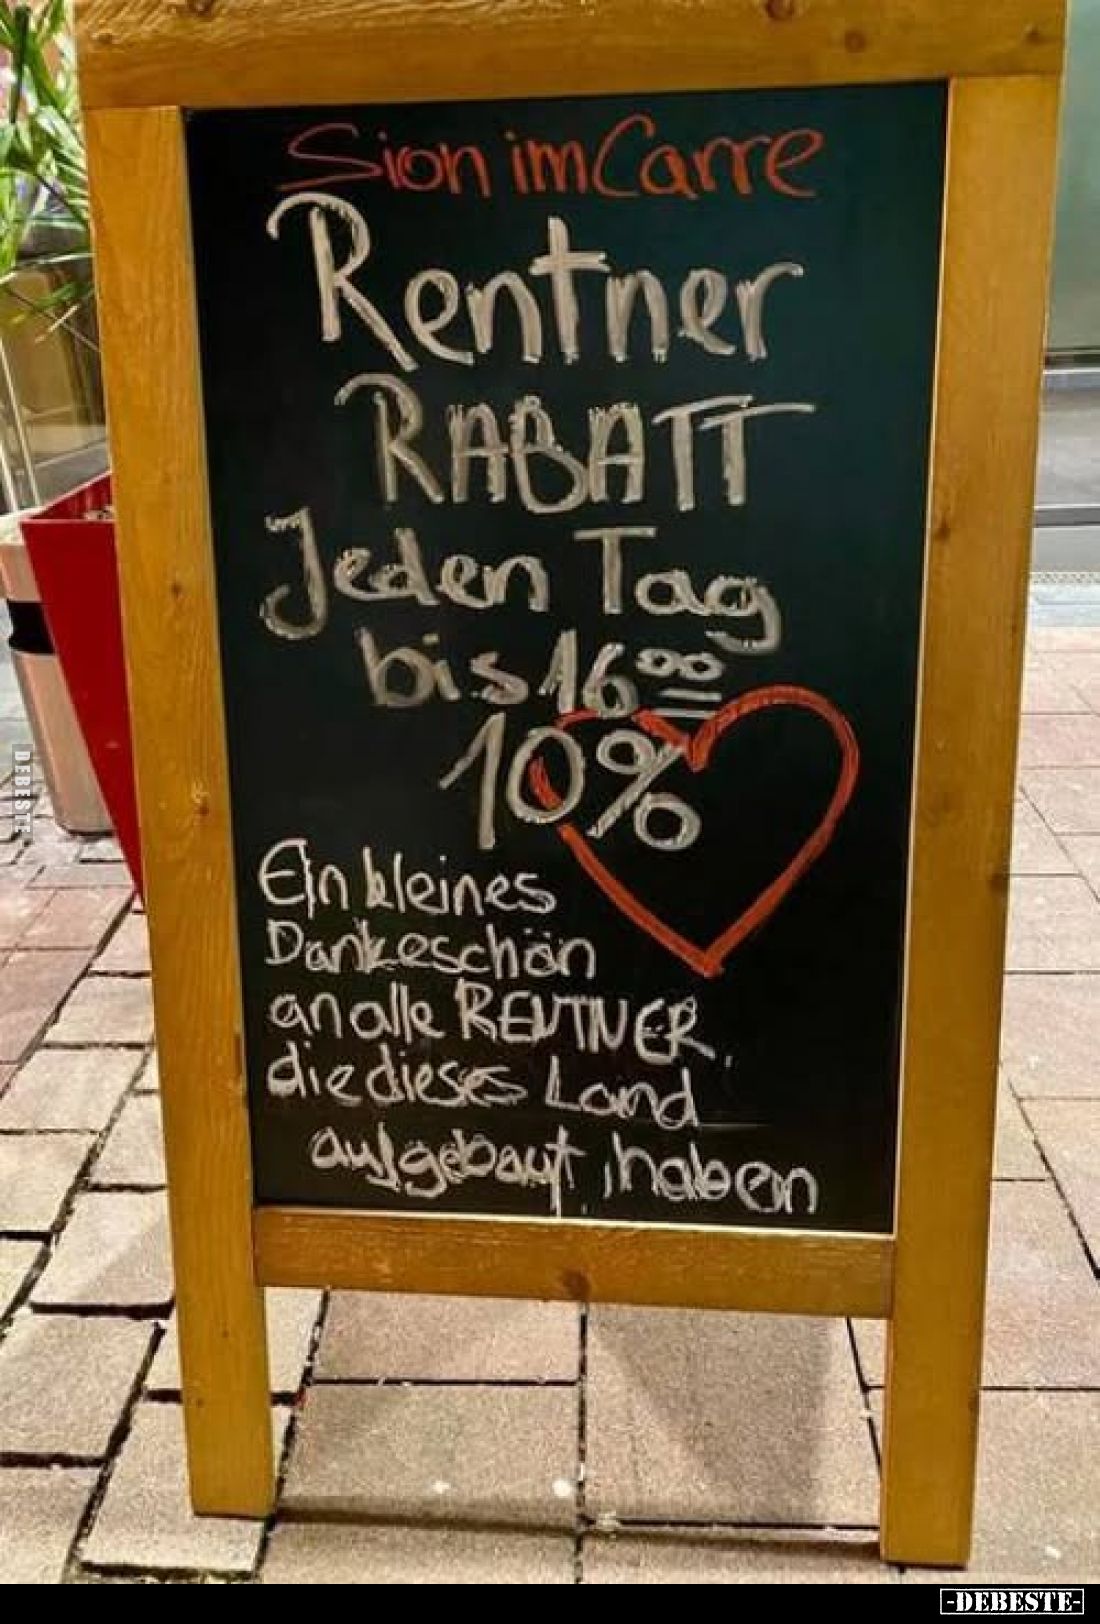 Sion im Carre
Rentner
RABATT
Jeden Tag
bis 16⁰⁰
10%
Ein kleines
Dankeschön
an alle RENTNER,
die dieses Land
aufgebaut haben
DEBESTE
-DEBESTE-